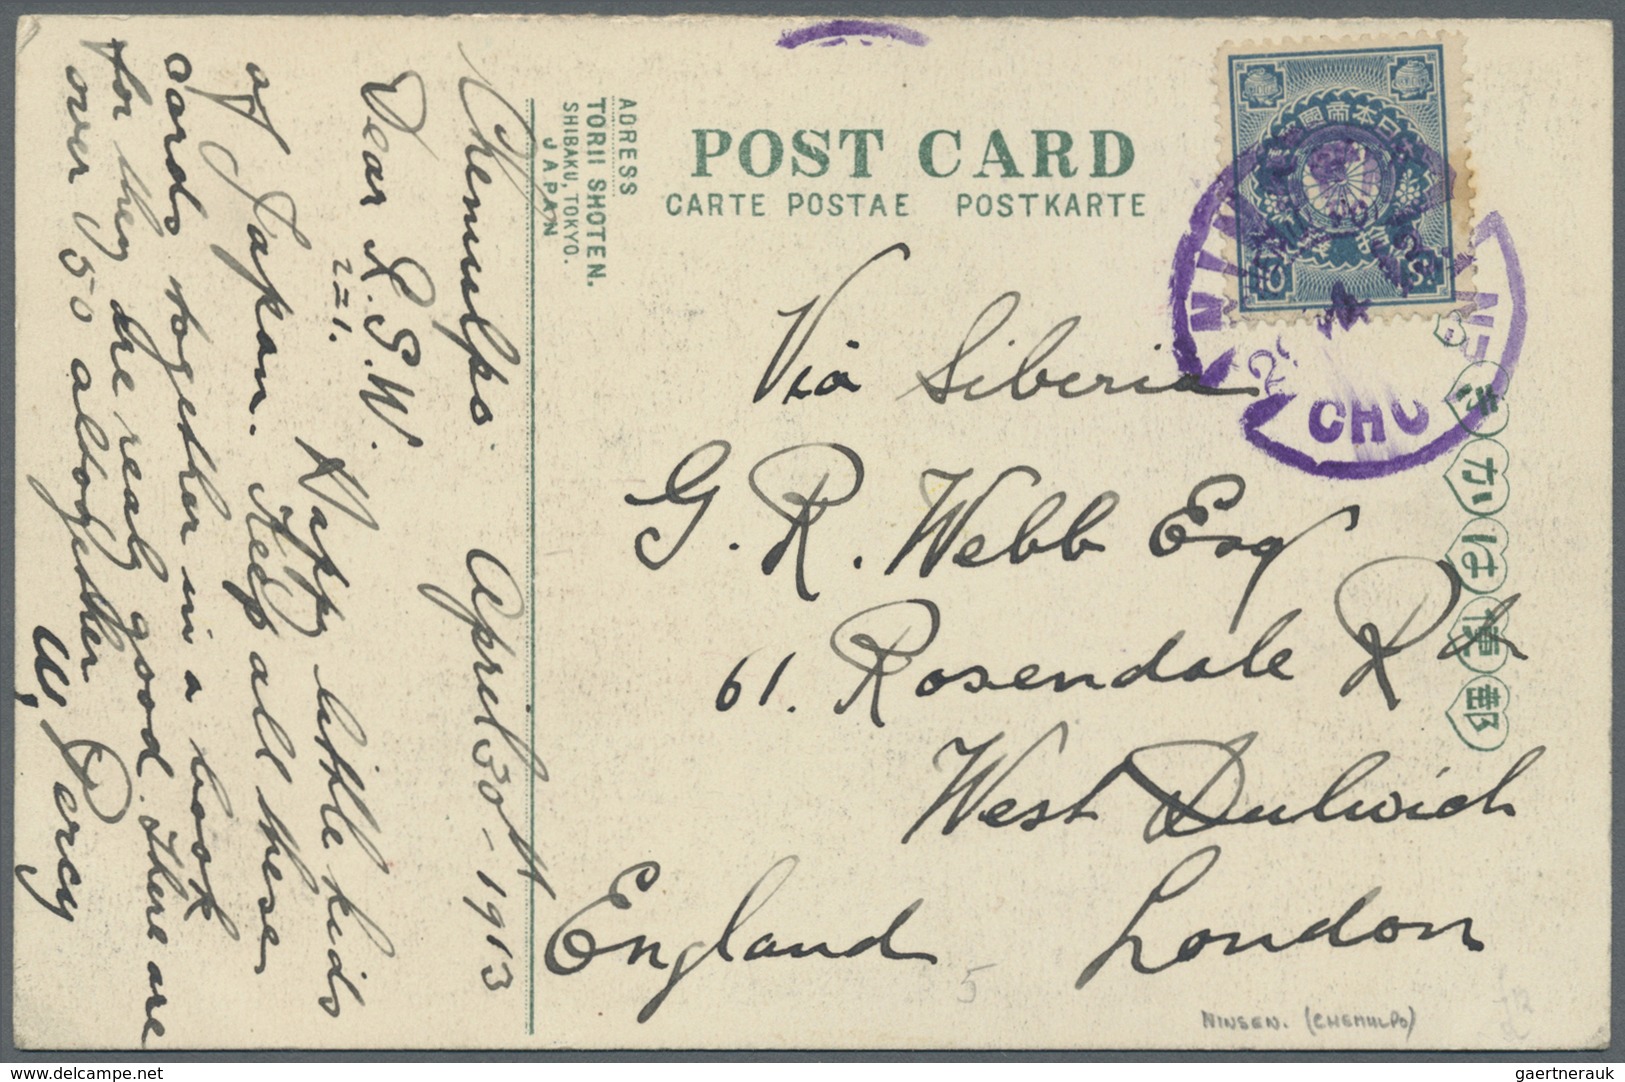 POST CARD
CARTE POSTAE POSTKARTE
ADRESS
TORII SHOTEN.
SHIBAKU, TOKYO.
JAPAN
Chemulpo. April 30th - 1913
Dear R.G.W.
221.
Happy little kids
of Japan. Keep all these
cards together in a book
for they are realy good. There are
over 150 altogether
W. Percy
10 Sn
NIN
CHO
Via Siberia
G. R. Webb Esq
61. Rosendale Rd
West Dulwich
London
England
きかは便郵
5
NINSEN. (CHEMULPO)
www.delcampe.net
gaertnerauk